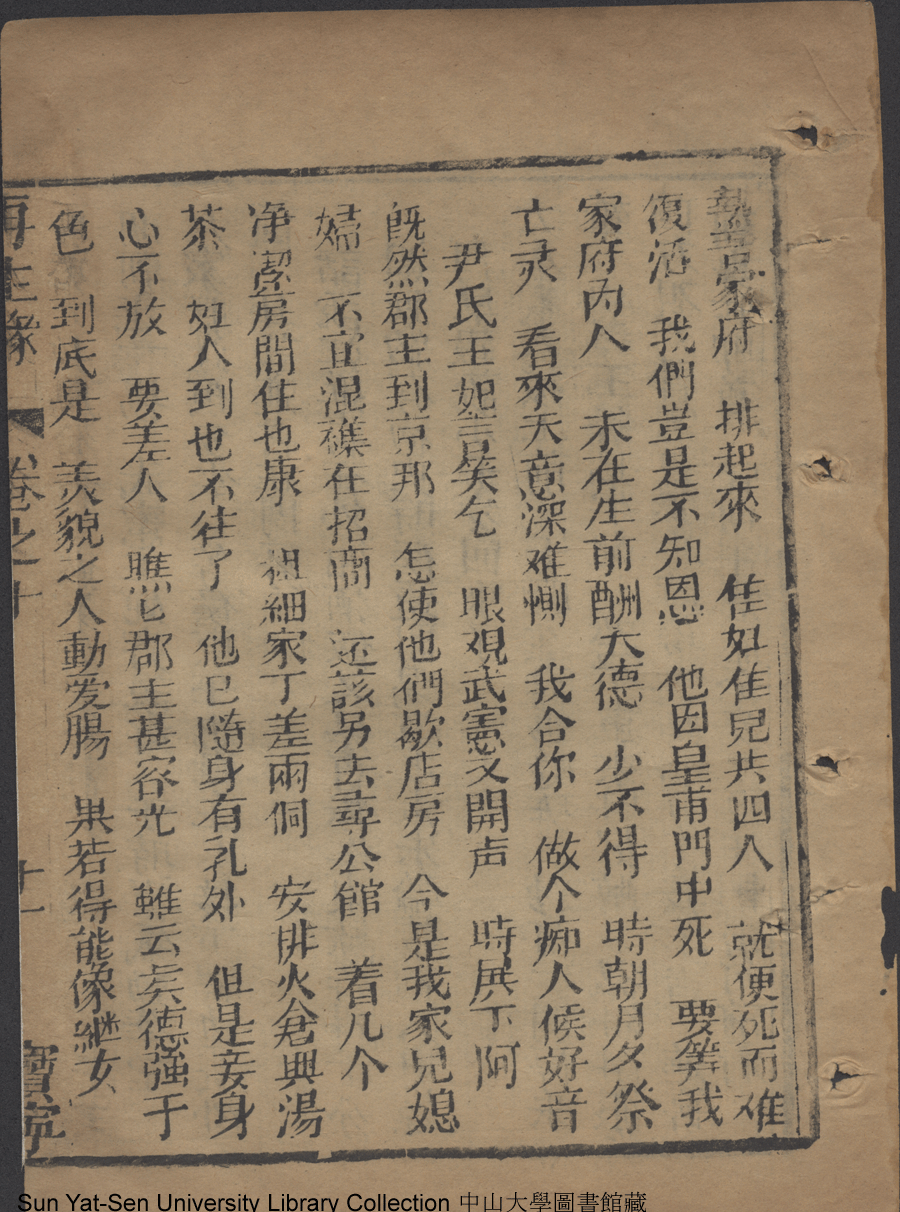 蒙府 排起來 隹如隹兒共四人 就便死而难
復活 我們豈是不知恩 他因皇甫門中死 要筭我
家府内人 未在生前酬大德 少不得 時朝月夕祭
亡灵 看來天意深难惻 我合你 做个痴人候好音
尹氏王妃言矣乞 眼观武憲又開声 時展下 阿
既然郡主到京邦 怎使他們歇店房 今是我家兄媳
婦 不宜混襍在招商 还該另去尋公館 着几个
净潔房間住也康 祖細家丁差兩個 安排火倉興湯
茶 奴人到也不往了 他已隨身有乳外 但是妾身
心不放 要差人 瞧乞郡主甚容光 雖云矣德強于
色 到底是 羙貌之人動爱腸 果若得能像継女
再生緣 卷之十 十一 寶寧
Sun Yat-Sen University Library Collection 中山大學圖書館藏